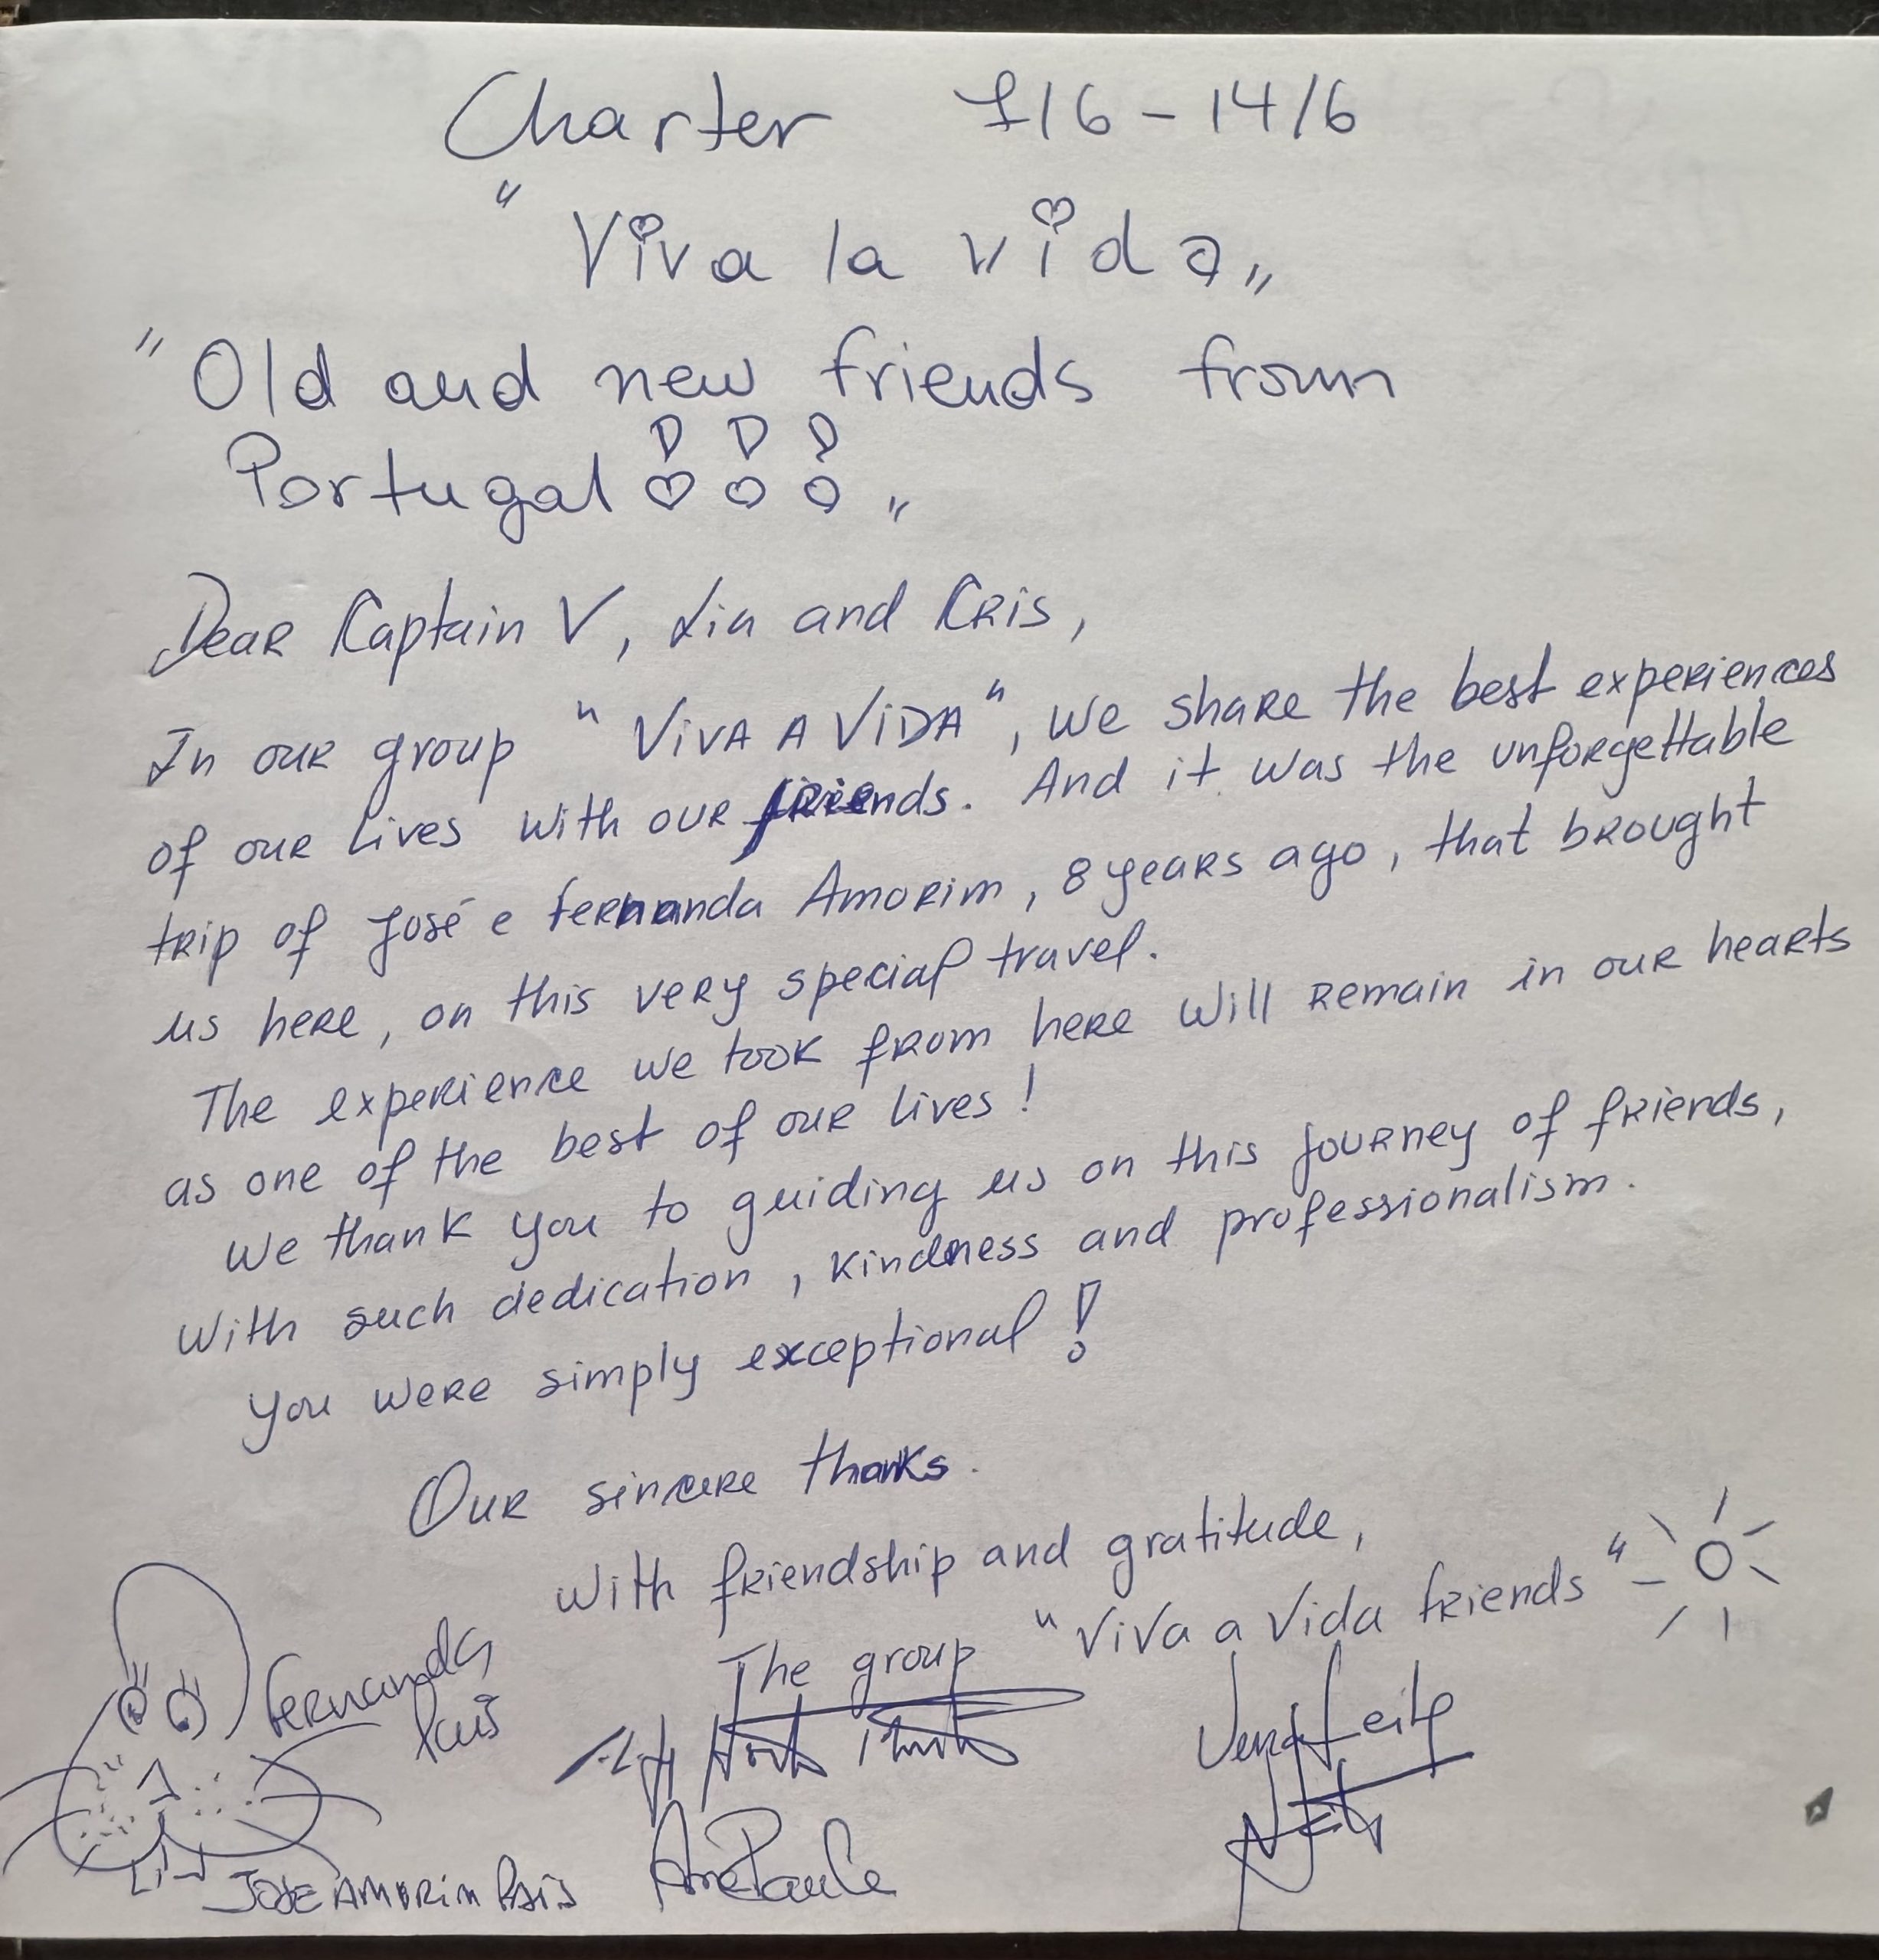 Charter 7/6 - 14/6
"Viva la vida„
"Old and new friends from
Portugal !!!„
Dear Captain V, Lia and Cris,
In our group "VIVA A VIDA", we share the best experiences
of our lives with our friends. And it was the unforgettable
trip of José e Fernanda Amorim, 8 years ago, that brought
us here, on this very special travel.
The experience we took from here will remain in our hearts
as one of the best of our lives!
We thank you to guiding us on this journey of friends,
with such dedication, kindness and professionalism.
You were simply exceptional!
Our sincere thanks.
With friendship and gratitude,
The group "Viva a Vida friends"
Fernanda
Pais
JOSE AMORIM PAIS
Ana Paula